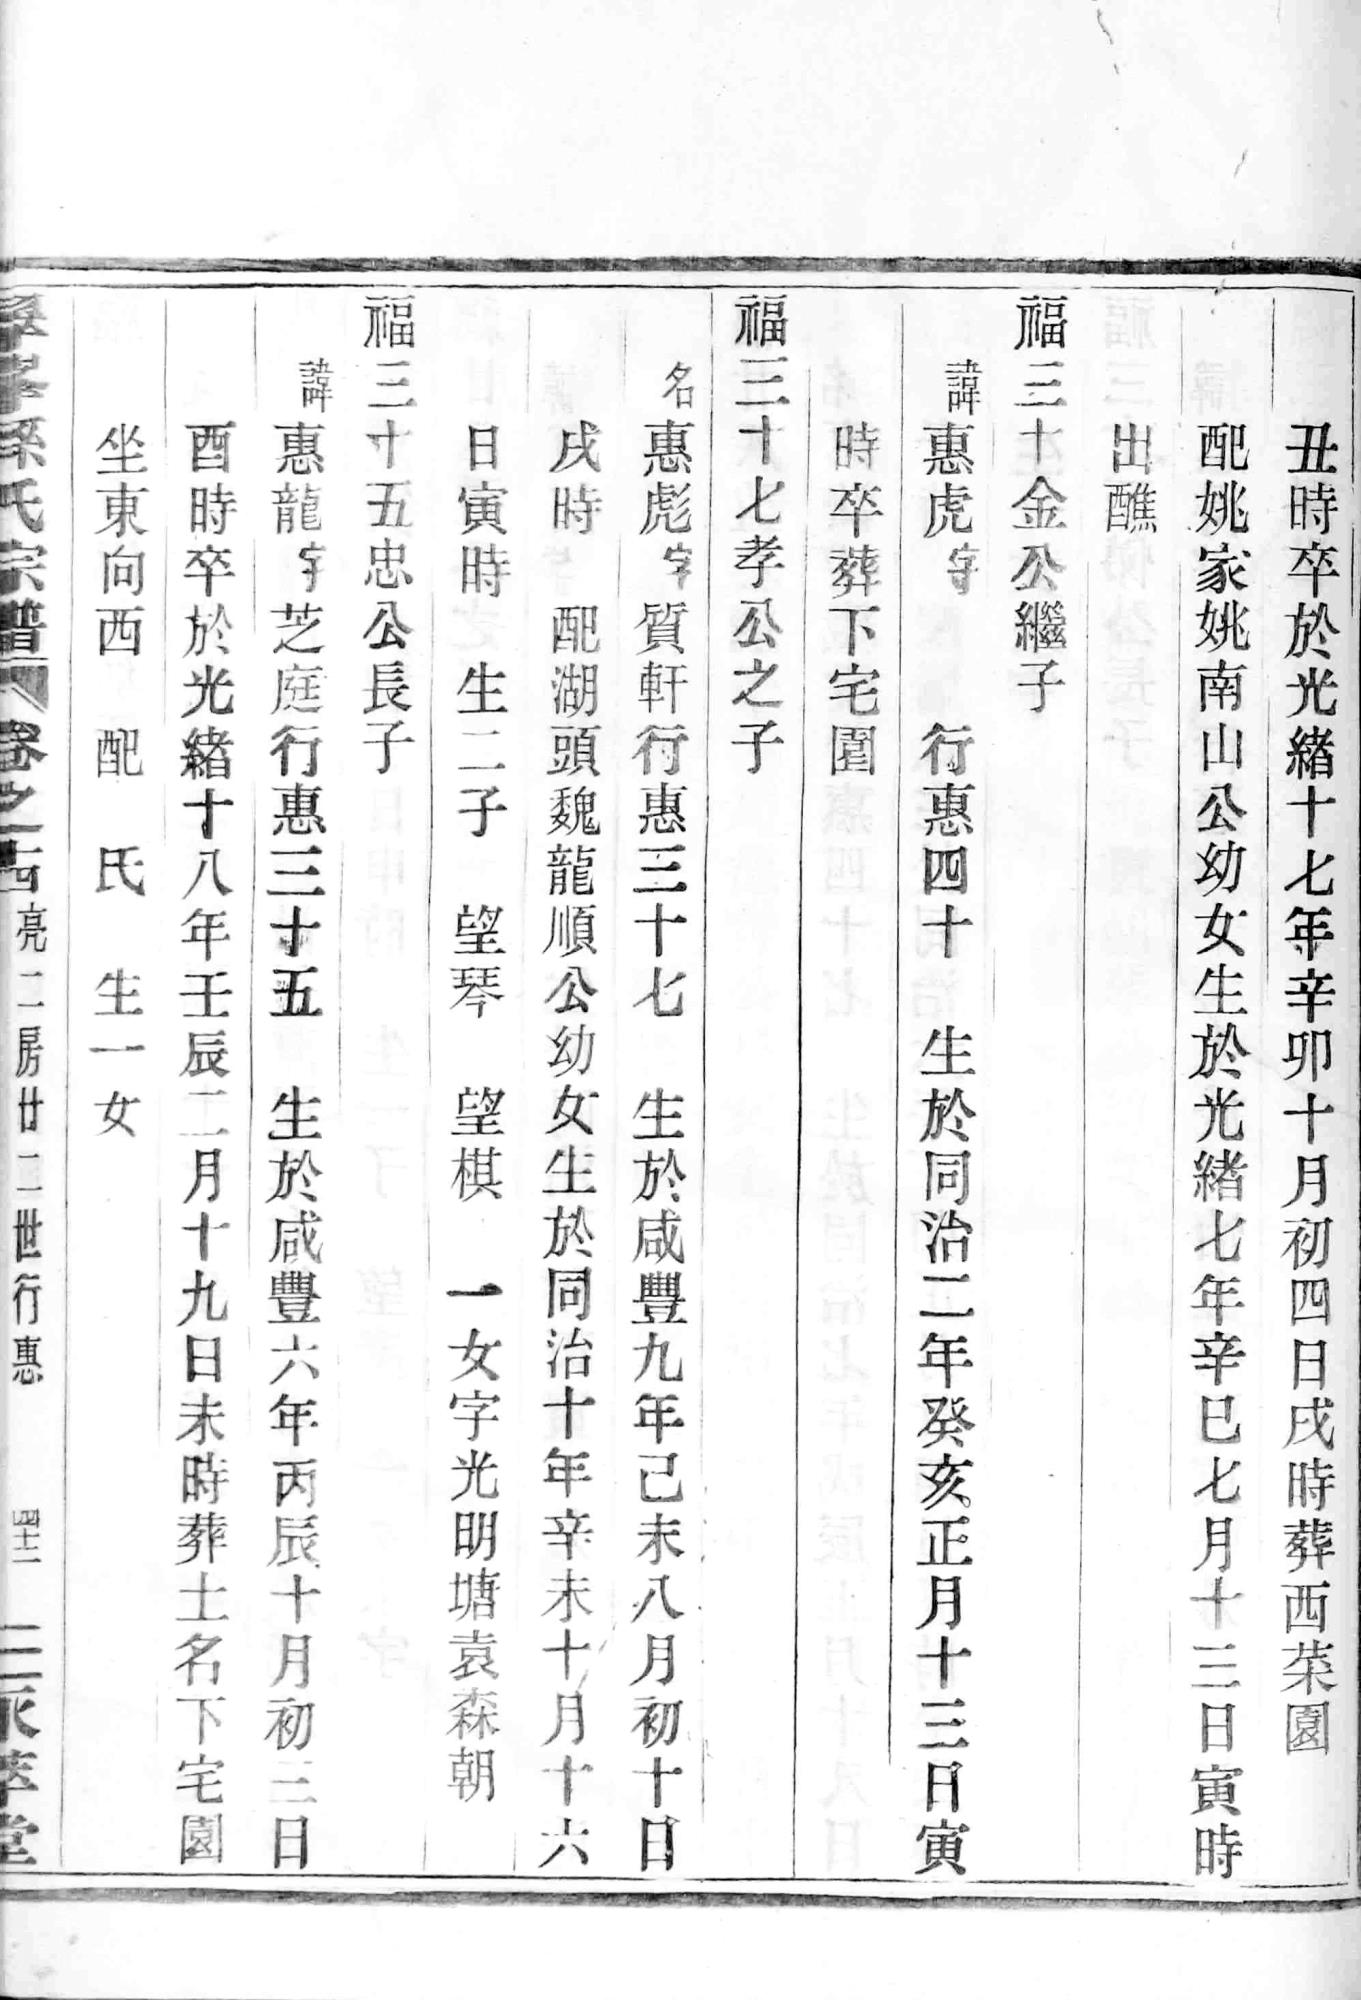 丑時卒於光緒十七年辛卯十月初四日戌時葬西菜園
配姚家姚南山公幼女生於光緒七年辛巳七月十三日寅時
出醮
福三十金公繼子
諱惠虎字　行惠四十　生於同治二年癸亥正月十三日寅
時卒葬下宅園
福三十七孝公之子
名惠彪字質軒行惠三十七　生於咸豐九年己未八月初十日
戌時　配湖頭魏龍順公幼女生於同治十年辛未十月十六
日寅時　生二子　望琴　望棋　一女字光明塘袁森朝
福三十五忠公長子
諱惠龍字芝庭行惠三十五　生於咸豐六年丙辰十月初三日
酉時卒於光緒十八年壬辰二月十九日未時葬土名下宅園
坐東向西　配　氏　生一女
孫氏宗譜　卷之十四　亮二房廿二世行惠　四十二　萃堂